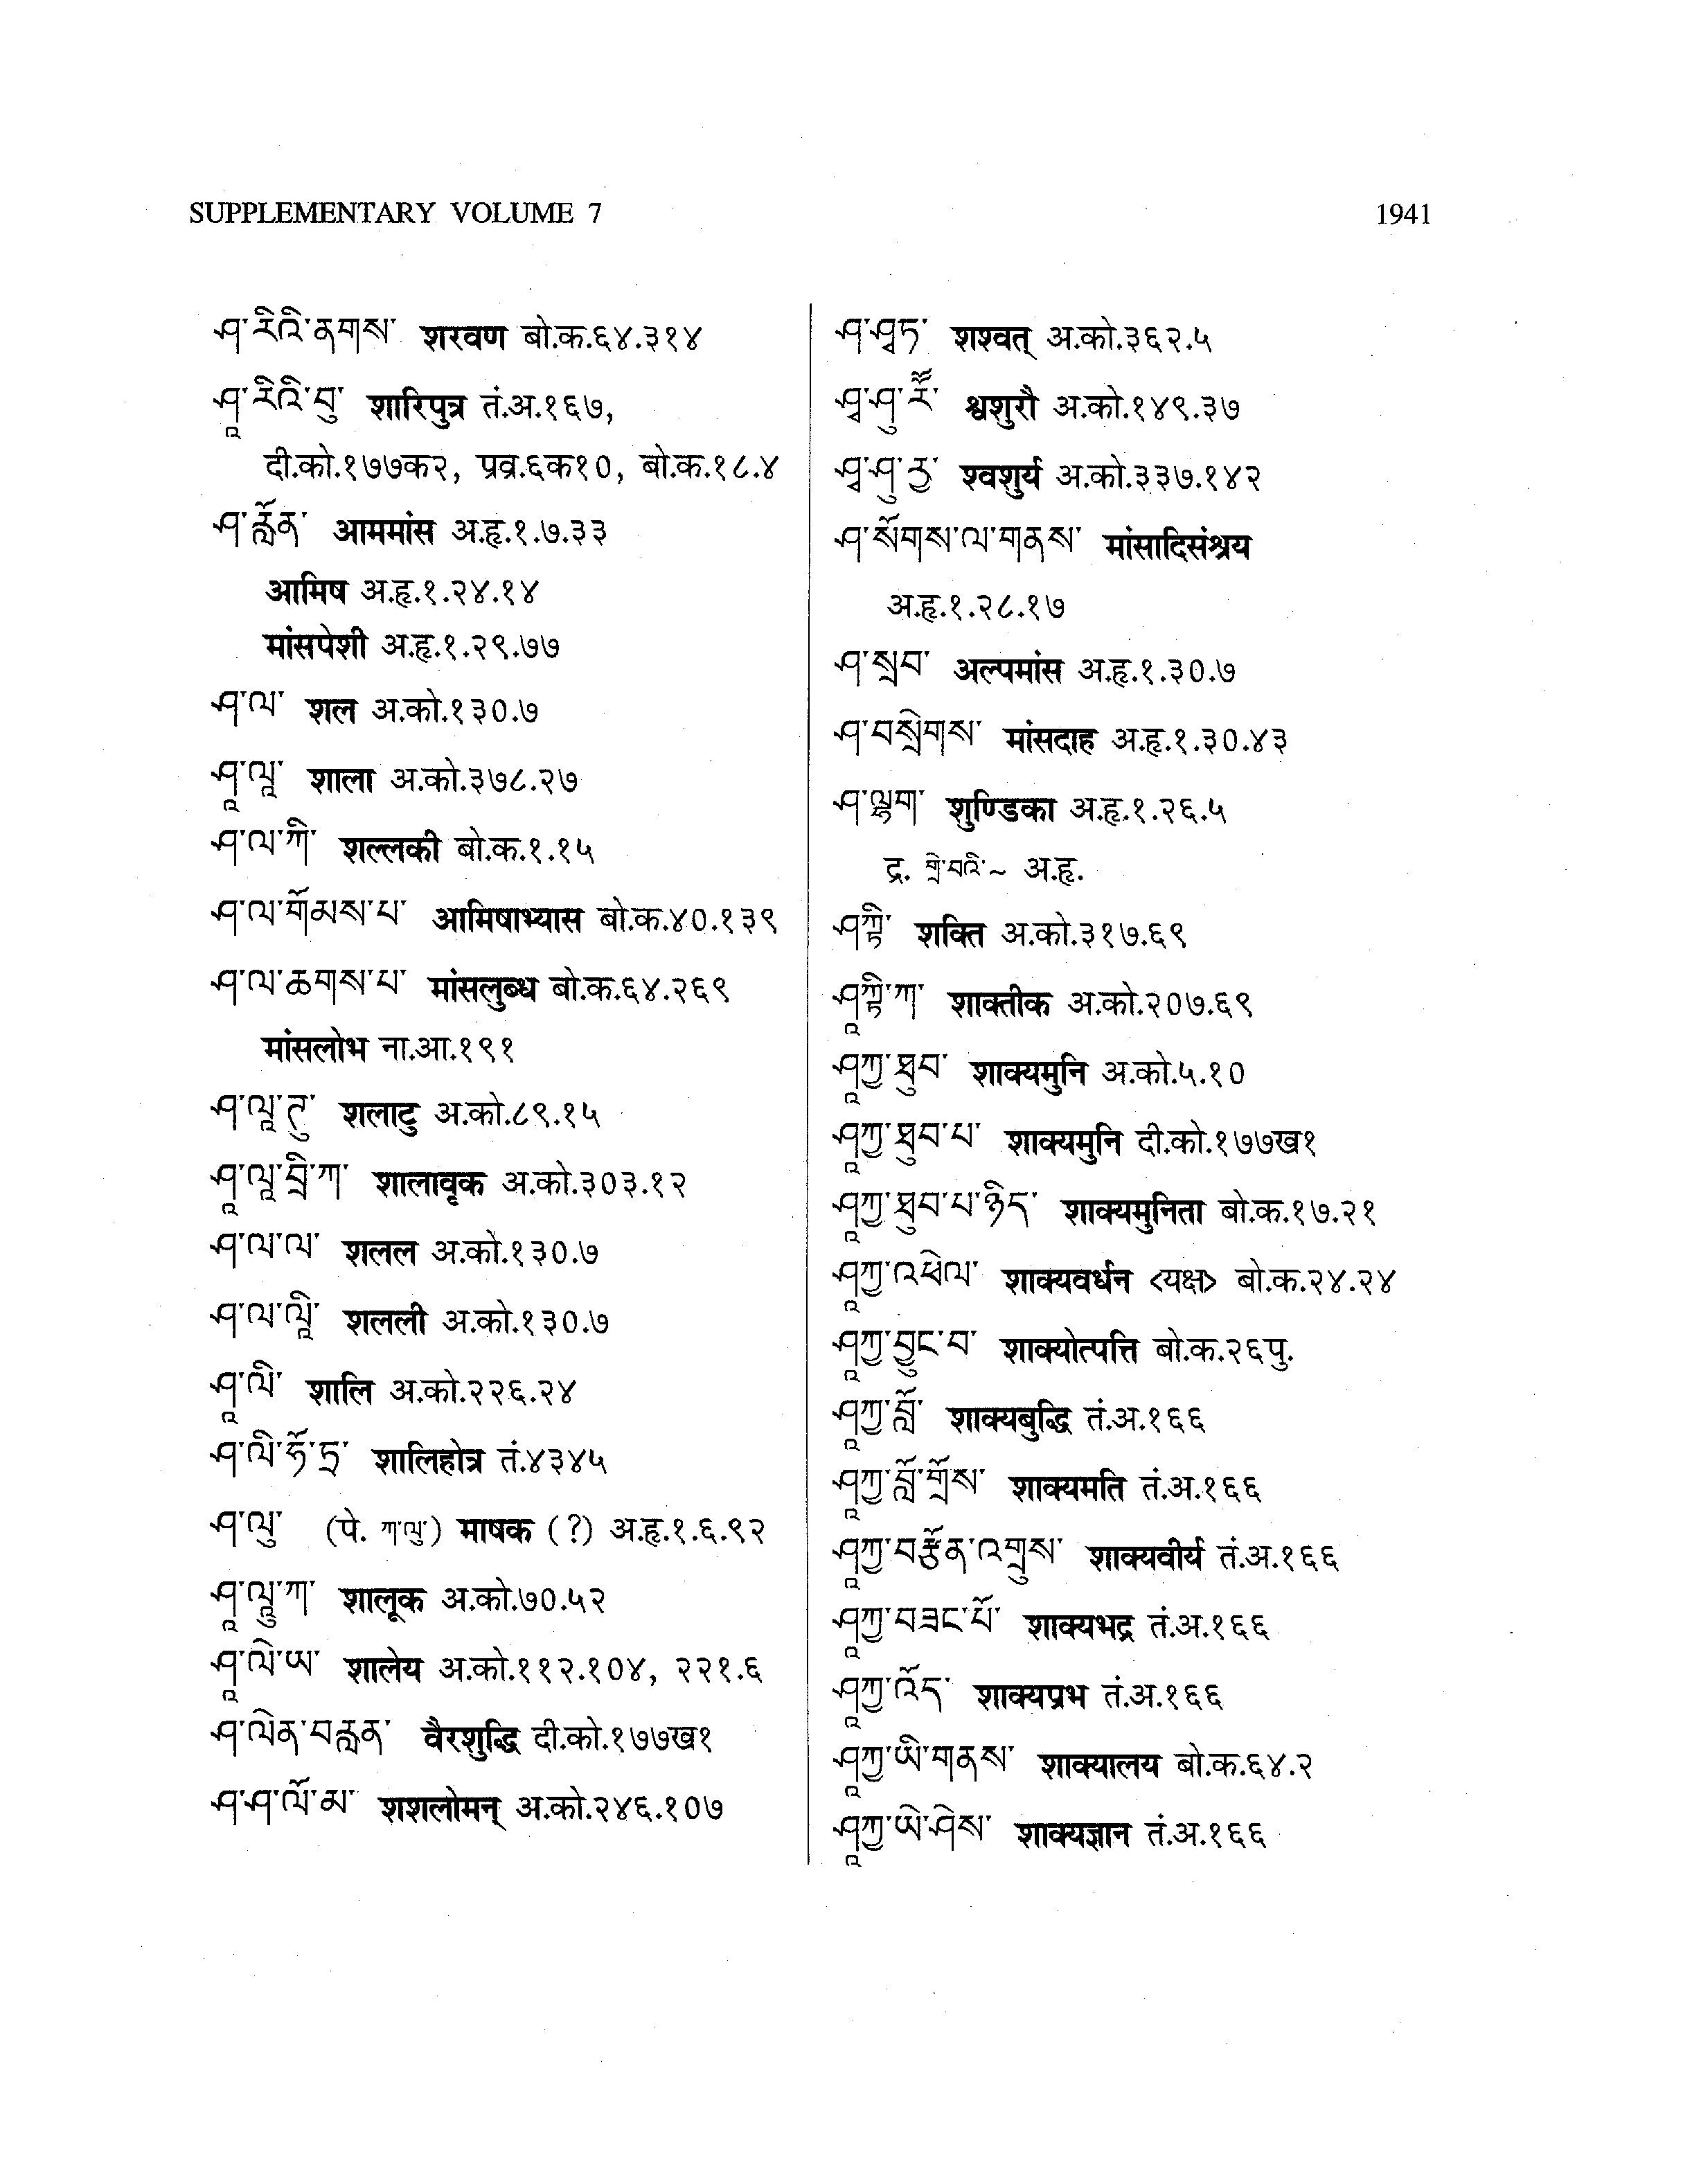 SUPPLEMENTARY VOLUME 7
1941
ཤ་རིའི་ནགས་ शरवण बो.क.६४.३१४
ཤཱ་རིའི་བུ་ शारिपुत्र तं.अ.१६७,
दी.को.१७७क२, प्रव्र.६क१०, बो.क.१८.४
ཤ་རློན་ आममांस अ.हृ.१.७.३३
आमिष अ.हृ.१.२४.१४
मांसपेशी अ.हृ.१.२९.७७
ཤ་ལ་ शल अ.को.१३०.७
ཤཱ་ལཱ་ शाला अ.को.३७८.२७
ཤ་ལ་ཀི་ शल्लकी बो.क.१.१५
ཤ་ལ་གོམས་པ་ आमिषाभ्यास बो.क.४०.१३९
ཤ་ལ་ཆགས་པ་ मांसलुब्ध बो.क.६४.२६९
मांसलोभ ना.आ.१९१
ཤ་ལཱ་ཊུ་ शलाटु अ.को.८९.१५
ཤཱ་ལཱ་བྲྀ་ཀ་ शालावृक अ.को.३०३.१२
ཤ་ལ་ལ་ शलल अ.को.१३०.७
ཤ་ལ་ལཱི་ शलली अ.को.१३०.७
ཤཱ་ལི་ शालि अ.को.२२६.२४
ཤ་ལི་ཧོ་ཏྲ་ शालिहोत्र तं.४३४५
ཤ་ལུ་ (पे. ཀ་ལུ་) माषक (?) अ.हृ.१.६.९२
ཤཱ་ལཱུ་ཀ་ शालूक अ.को.७०.५२
ཤཱ་ལེ་ཡ་ शालेय अ.को.११२.१०४, २२१.६
ཤ་ལེན་བརླན་ वैरशुद्धि दी.को.१७७ख१
ཤ་ཤ་ལོ་མ་ शशलोमन् अ.को.२४६.१०७
ཤ་ཤྭཏ་ शश्वत् अ.को.३६२.५
ཤྭ་ཤུ་རཽ་ श्वशुरौ अ.को.१४९.३७
ཤྭ་ཤུ་རྱ་ श्वशुर्य अ.को.३३७.१४२
ཤ་སོགས་ལ་གནས་ मांसादिसंश्रय
अ.हृ.१.२८.१७
ཤ་སྲབ་ अल्पमांस अ.हृ.१.३०.७
ཤ་བསྲེགས་ मांसदाह अ.हृ.१.३०.४३
ཤ་ལྷག་ शुण्डिका अ.हृ.१.२६.५
द्र. གྲེ་བའི་~ अ.हृ.
ཤཀྟི་ शक्ति अ.को.३१७.६९
ཤཱཀྟི་ཀ་ शाक्तीक अ.को.२०७.६९
ཤཱཀྱ་ཐུབ་ शाक्यमुनि अ.को.५.१०
ཤཱཀྱ་ཐུབ་པ་ शाक्यमुनि दी.को.१७७ख१
ཤཱཀྱ་ཐུབ་པ་ཉིད་ शाक्यमुनिता बो.क.१७.२१
ཤཱཀྱ་འཕེལ་ शाक्यवर्धन <यक्ष> बो.क.२४.२४
ཤཱཀྱ་བྱུང་བ་ शाक्योत्पत्ति बो.क.२६पु.
ཤཱཀྱ་བློ་ शाक्यबुद्धि तं.अ.१६६
ཤཱཀྱ་བློ་གྲོས་ शाक्यमति तं.अ.१६६
ཤཱཀྱ་བརྩོན་འགྲུས་ शाक्यवीर्य तं.अ.१६६
ཤཱཀྱ་བཟང་པོ་ शाक्यभद्र तं.अ.१६६
ཤཱཀྱ་འོད་ शाक्यप्रभ तं.अ.१६६
ཤཱཀྱ་ཡི་གནས་ शाक्यालय बो.क.६४.२
ཤཱཀྱ་ཡེ་ཤེས་ शाक्यज्ञान तं.अ.१६६